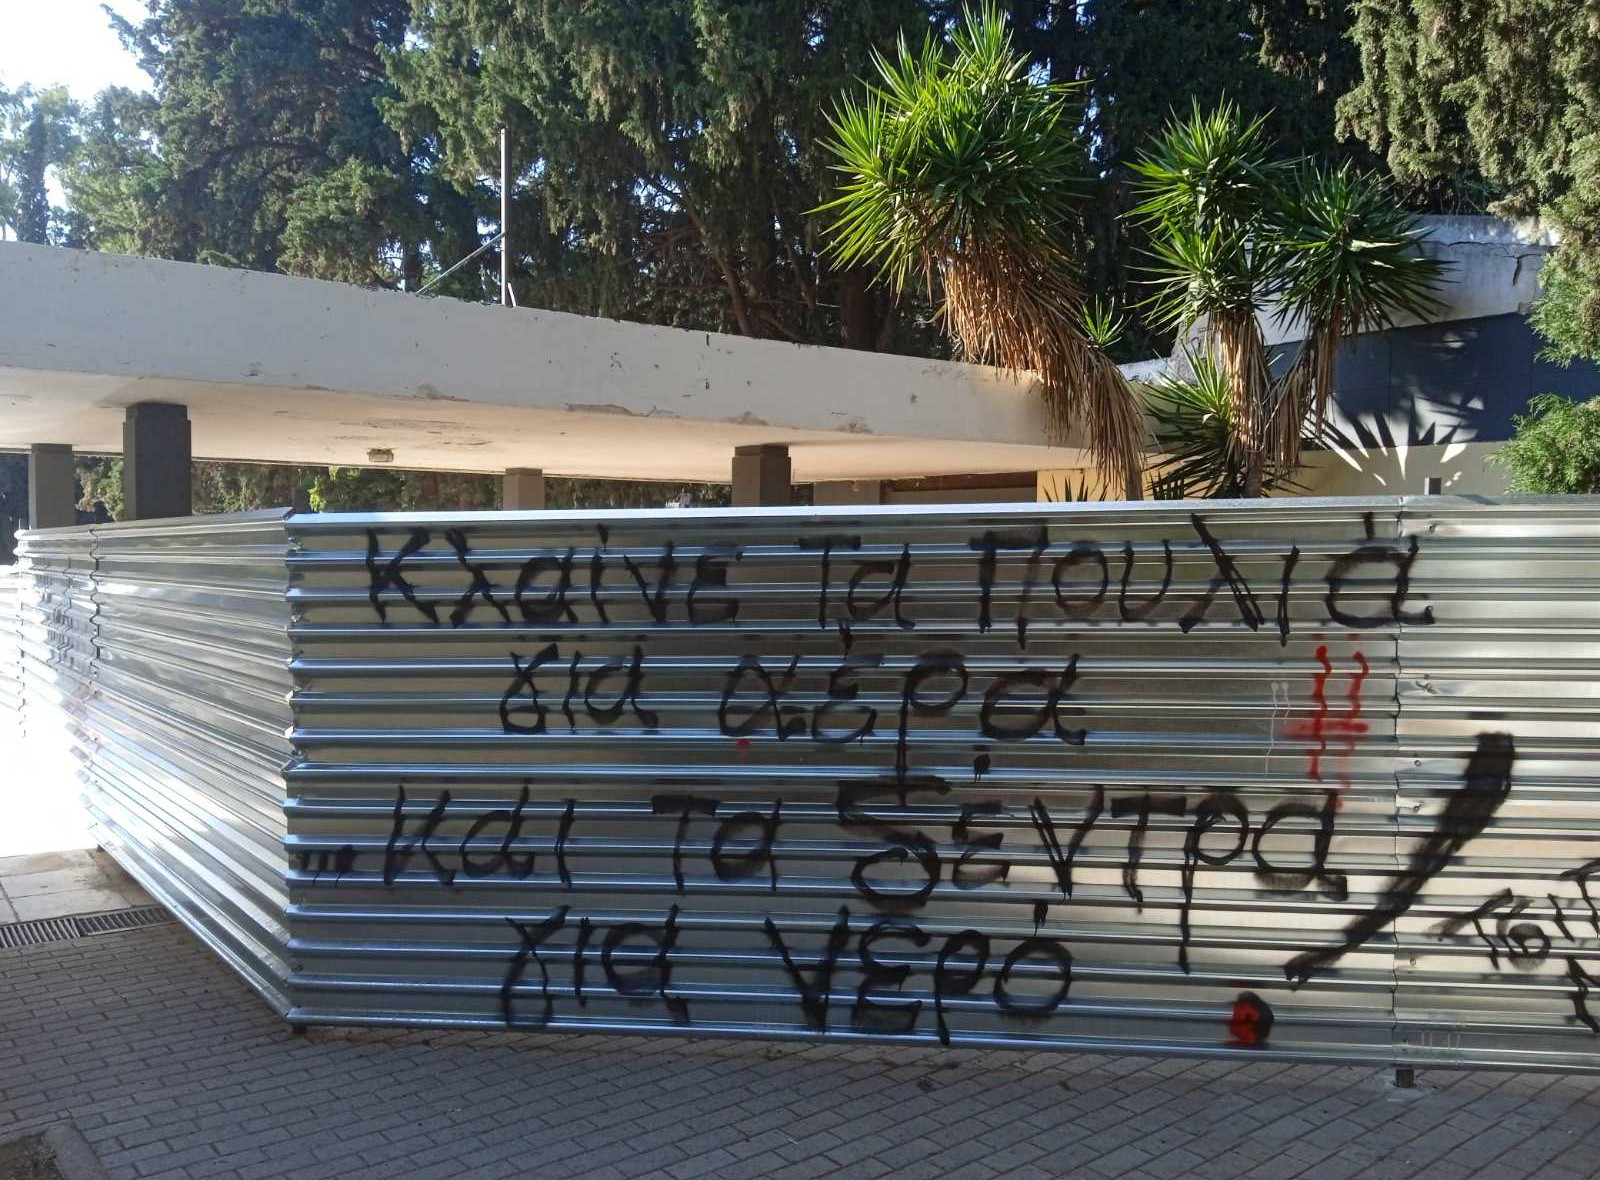 Κλαίνε Τα Πουλιά
για αέρα
...και τα δεντρα
για νερό !